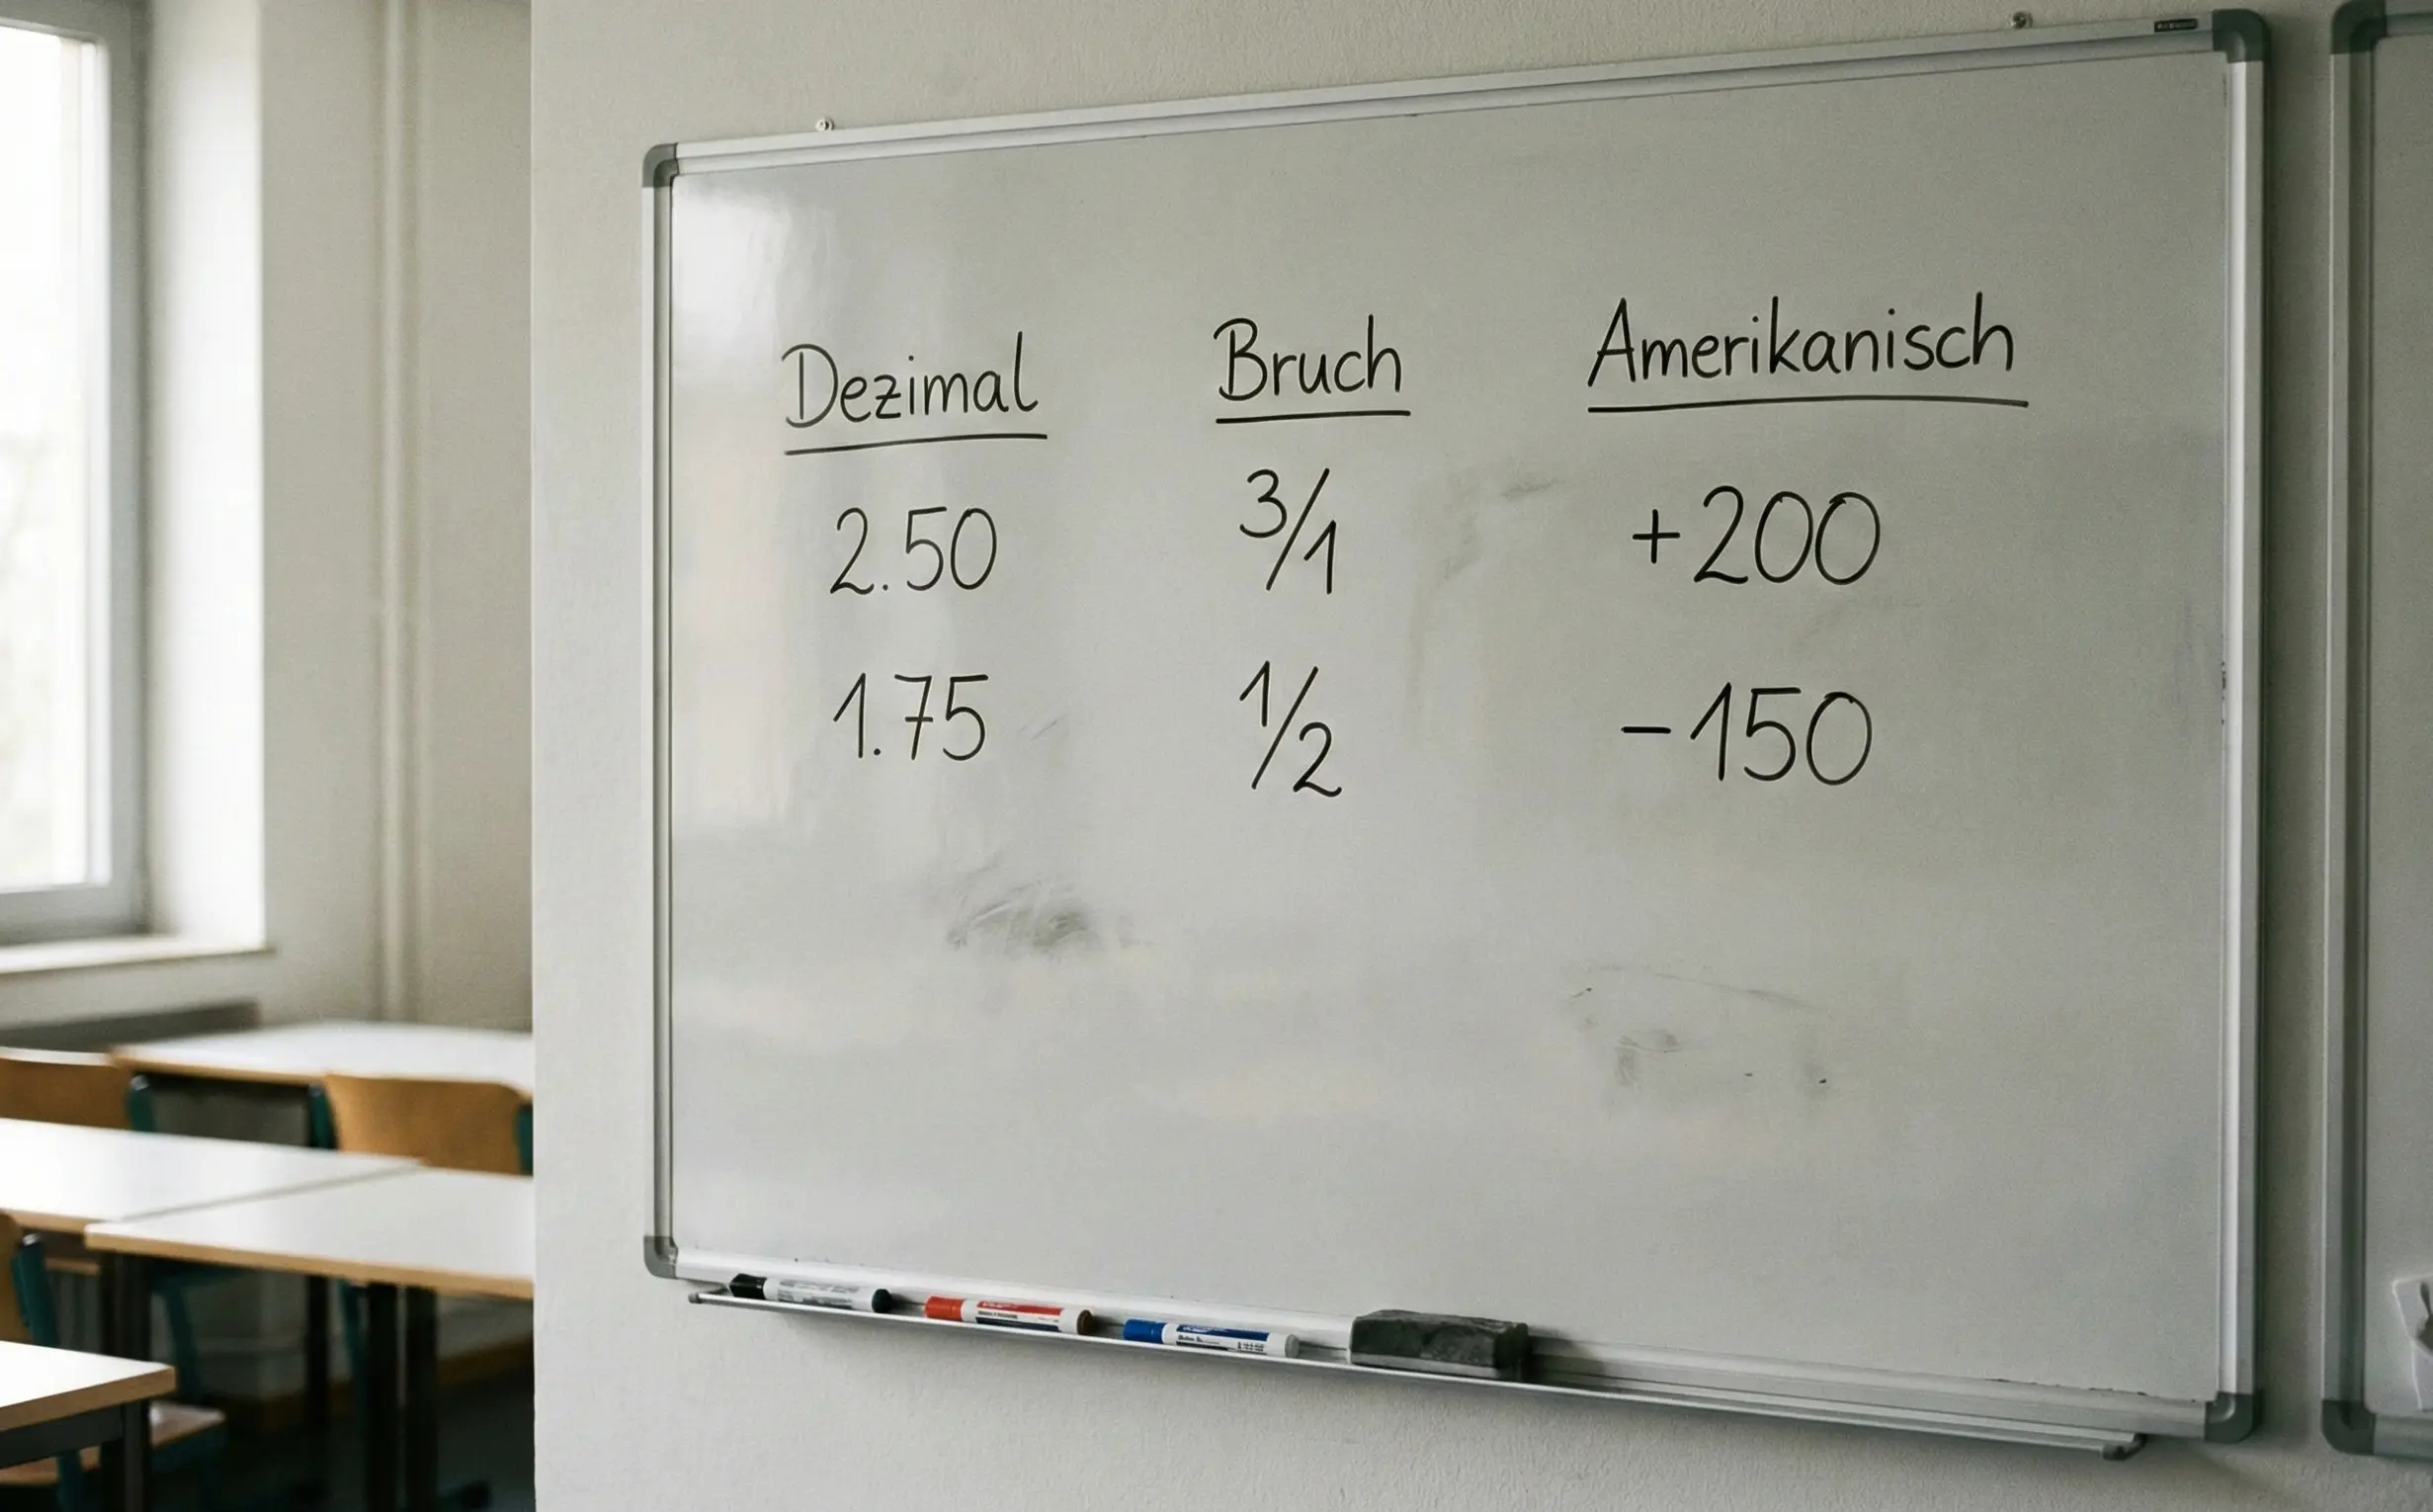 Dezimal Bruch Amerikanisch
2.50 3/1 +200
1.75 1/2 -150